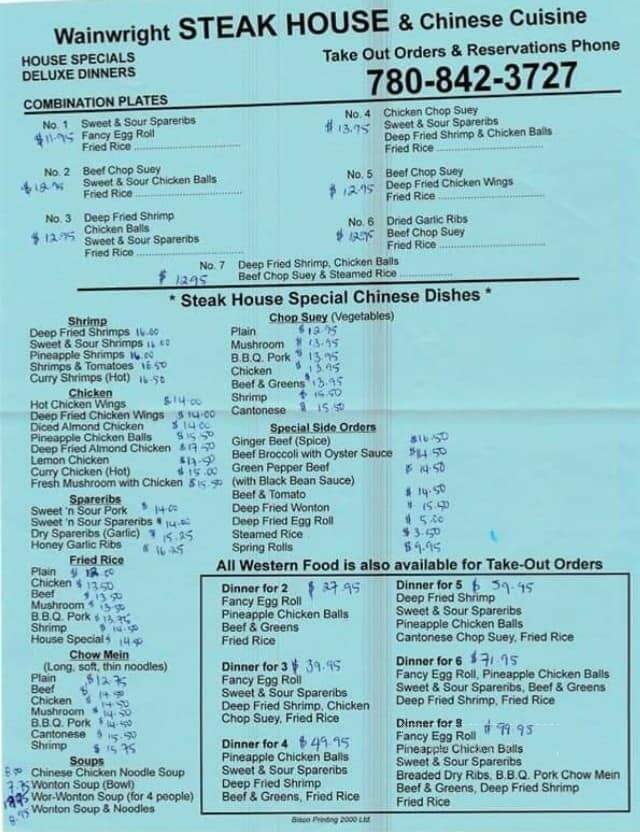 Wainwright STEAK HOUSE & Chinese Cuisine
HOUSE SPECIALS
DELUXE DINNERS
Take Out Orders & Reservations Phone
780-842-3727
COMBINATION PLATES
No. 1 Sweet & Sour Spareribs
$11.95 Fancy Egg Roll
Fried Rice
No. 2 Beef Chop Suey
Sweet & Sour Chicken Balls
Fried Rice
No. 3 Deep Fried Shrimp
Chicken Balls
$12.95 Sweet & Sour Spareribs
Fried Rice
No. 4 Chicken Chop Suey
$13.95 Sweet & Sour Spareribs
Deep Fried Shrimp & Chicken Balls
Fried Rice
No. 5 Beef Chop Suey
$12.95 Deep Fried Chicken Wings
Fried Rice
No. 6 Dried Garlic Ribs
$12.95 Beef Chop Suey
Fried Rice
No. 7 Deep Fried Shrimp, Chicken Balls
$12.95 Beef Chop Suey & Steamed Rice
* Steak House Special Chinese Dishes *
Shrimp
Deep Fried Shrimps 16.00
Sweet & Sour Shrimps 16.00
Pineapple Shrimps 16.00
Shrimps & Tomatoes 16.50
Curry Shrimps (Hot) 16.50
Chicken
Hot Chicken Wings $14.00
Deep Fried Chicken Wings $14.00
Diced Almond Chicken $14.00
Pineapple Chicken Balls $15.50
Deep Fried Almond Chicken
Lemon Chicken
Curry Chicken (Hot) $15.00
Fresh Mushroom with Chicken $15.50
Spareribs
Sweet 'n Sour Pork $14.00
Sweet 'n Sour Spareribs $14.00
Dry Spareribs (Garlic) $15.25
Honey Garlic Ribs $16.25
Fried Rice
Plain
Chicken $13.50
Beef $13.50
Mushroom $13.50
B.B.Q. Pork $13.75
Shrimp $14.50
House Special $14.50
Chow Mein
(Long, soft, thin noodles)
Plain $12.75
Beef $14.50
Chicken $14.50
Mushroom $14.50
B.B.Q. Pork $14.50
Cantonese $15.50
Shrimp $15.75
Soups
8.00 Chinese Chicken Noodle Soup
7.75 Wonton Soup (Bowl)
Wor-Wonton Soup (for 4 people)
8.95 Wonton Soup & Noodles
Chop Suey (Vegetables)
Plain $12.95
Mushroom $13.95
B.B.Q. Pork $13.95
Chicken $13.95
Beef & Greens $13.95
Shrimp $15.50
Cantonese $15.50
Special Side Orders
Ginger Beef (Spice) $16.50
Beef Broccoli with Oyster Sauce $14.50
Green Pepper Beef $14.50
(with Black Bean Sauce)
Beef & Tomato $14.50
Deep Fried Wonton $15.50
Deep Fried Egg Roll $5.00
Steamed Rice $3.50
Spring Rolls $4.95
All Western Food is also available for Take-Out Orders
Dinner for 2 $27.95
Fancy Egg Roll
Pineapple Chicken Balls
Beef & Greens
Fried Rice
Dinner for 3 $39.95
Fancy Egg Roll
Sweet & Sour Spareribs
Deep Fried Shrimp, Chicken
Chop Suey, Fried Rice
Dinner for 4 $49.95
Pineapple Chicken Balls
Sweet & Sour Spareribs
Deep Fried Shrimp
Beef & Greens, Fried Rice
Dinner for 5 $59.95
Deep Fried Shrimp
Sweet & Sour Spareribs
Pineapple Chicken Balls
Cantonese Chop Suey, Fried Rice
Dinner for 6 $71.95
Fancy Egg Roll, Pineapple Chicken Balls
Sweet & Sour Spareribs, Beef & Greens
Deep Fried Shrimp, Fried Rice
Dinner for 8 $99.95
Fancy Egg Roll
Pineapple Chicken Balls
Sweet & Sour Spareribs
Breaded Dry Ribs, B.B.Q. Pork Chow Mein
Beef & Greens, Deep Fried Shrimp
Fried Rice
Bison Printing 2000 Ltd.